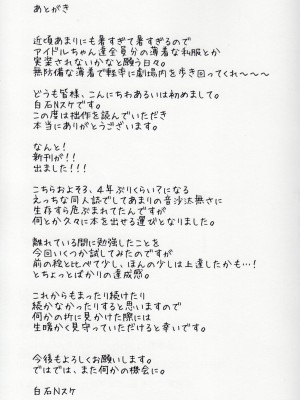 あとがき
近頃あまりにも暑すぎて暑すぎるので
アイドルちゃん達全員分の薄着な私服とか
実装されないかなと願う日々。
無防備な薄着で軽率に劇場内を歩き回ってくれ～～～
どうも皆様、こんにちわあるいは初めまして。
白石Nスケです。
この度は拙作を読んでいただき
本当にありがとうございます。
なんと！
新刊が！！
出ました！！！
こちらおよそ3、4年ぶりくらいになる
えっちな同人誌でしてあまりの音沙汰無さに
生存すら危ぶまれてたんですが
何とか久々に本を出せる運びとなりました。
離れている間に勉強したことを
今回いくつか試してみたのですが
前の絵と比べて少し、ほんの少しは上達したかも…！
とちょっとばかりの達成感。
これからもまったり続けたり
続かなかったりすると思いますので
何かの折に見かけた際には
生暖かく見守っていただけると幸いです。
今後もよろしくお願いします。
ではでは、また何かの機会に。
白石Nスケ